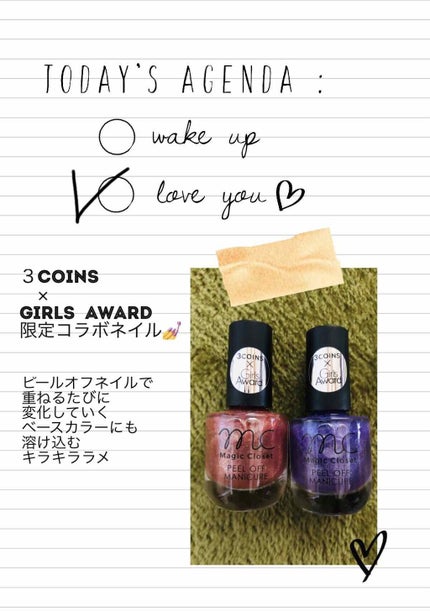 TODAY'S AGENDA :
wake up
love you
３COINS
×
GIRLS AWARD
限定コラボネイル💅
ピールオフネイルで
重ねるたびに
変化していく
ベースカラーにも
溶け込む
キラキララメ
3COINS
×
Girls
Award
mc
Magic Closet
PEEL OFF
MANICURE
3COINS
×
Girls
Award
mc
Magic Closet
PEEL OFF
MANICURE